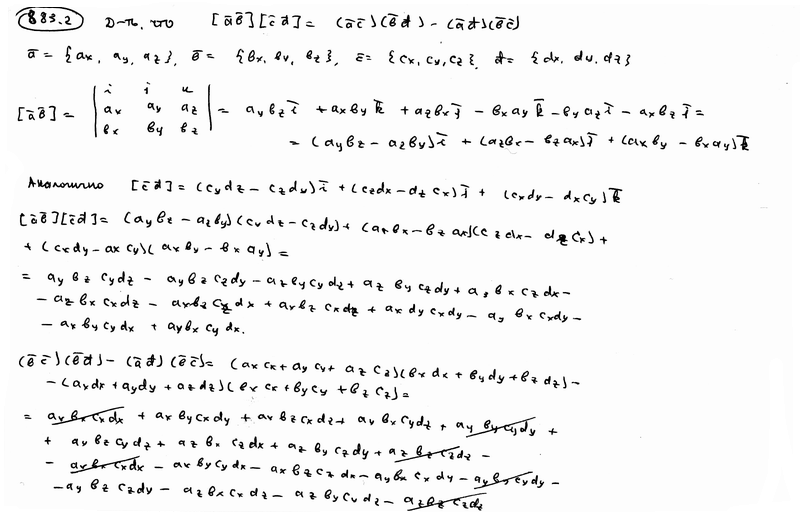 883.2 Д-ть, что [āb̄][c̄d̄] = (āc̄)(b̄d̄) - (ād̄)(b̄c̄)
ā = {ax, ay, az}, b̄ = {bx, by, bz}, c̄ = {cx, cy, cz}, d̄ = {dx, dy, dz}
[āb̄] = | i j k
ax ay az
bx by bz | = aybz ī + axby k̄ + azbx j̄ - bxay k̄ - byaz ī - axbz j̄ =
= (aybz - azby) ī + (azbx - bzax) j̄ + (axby - bxay) k̄
Аналогично [c̄d̄] = (cydz - czdy) ī + (czdx - dzcx) j̄ + (cxdy - dxcy) k̄
[āb̄][c̄d̄] = (aybz - azby)(cydz - czdy) + (azbx - bzax)(czdx - dzcx) +
+ (cxdy - dxcy)(axby - bxay) =
= aybzcydz - aybzczdy - azbycydz + azbyczdy + azbxczdx -
- azbxcxdz - axbzczdx + axbzcxdz + axbycxdy - aybxcxdy -
- axbycydx + aybxcydx.
(āc̄)(b̄d̄) - (ād̄)(b̄c̄) = (axcx + aycy + azcz)(bxdx + bydy + bzdz) -
- (axdx + aydy + azdz)(bxcx + bycy + bzcz) =
= axbxcxdx + axbycxdy + axbzcxdz + aybxcydx + aybycydy +
+ aybzcydz + azbxczdx + azbyczdy + azbzczdz -
- axbxcxdx - axbycydx - axbzczdx - aybxcxdy - aybycydy -
- aybzczdy - azbxcxdz - azbycydz - azbzczdz